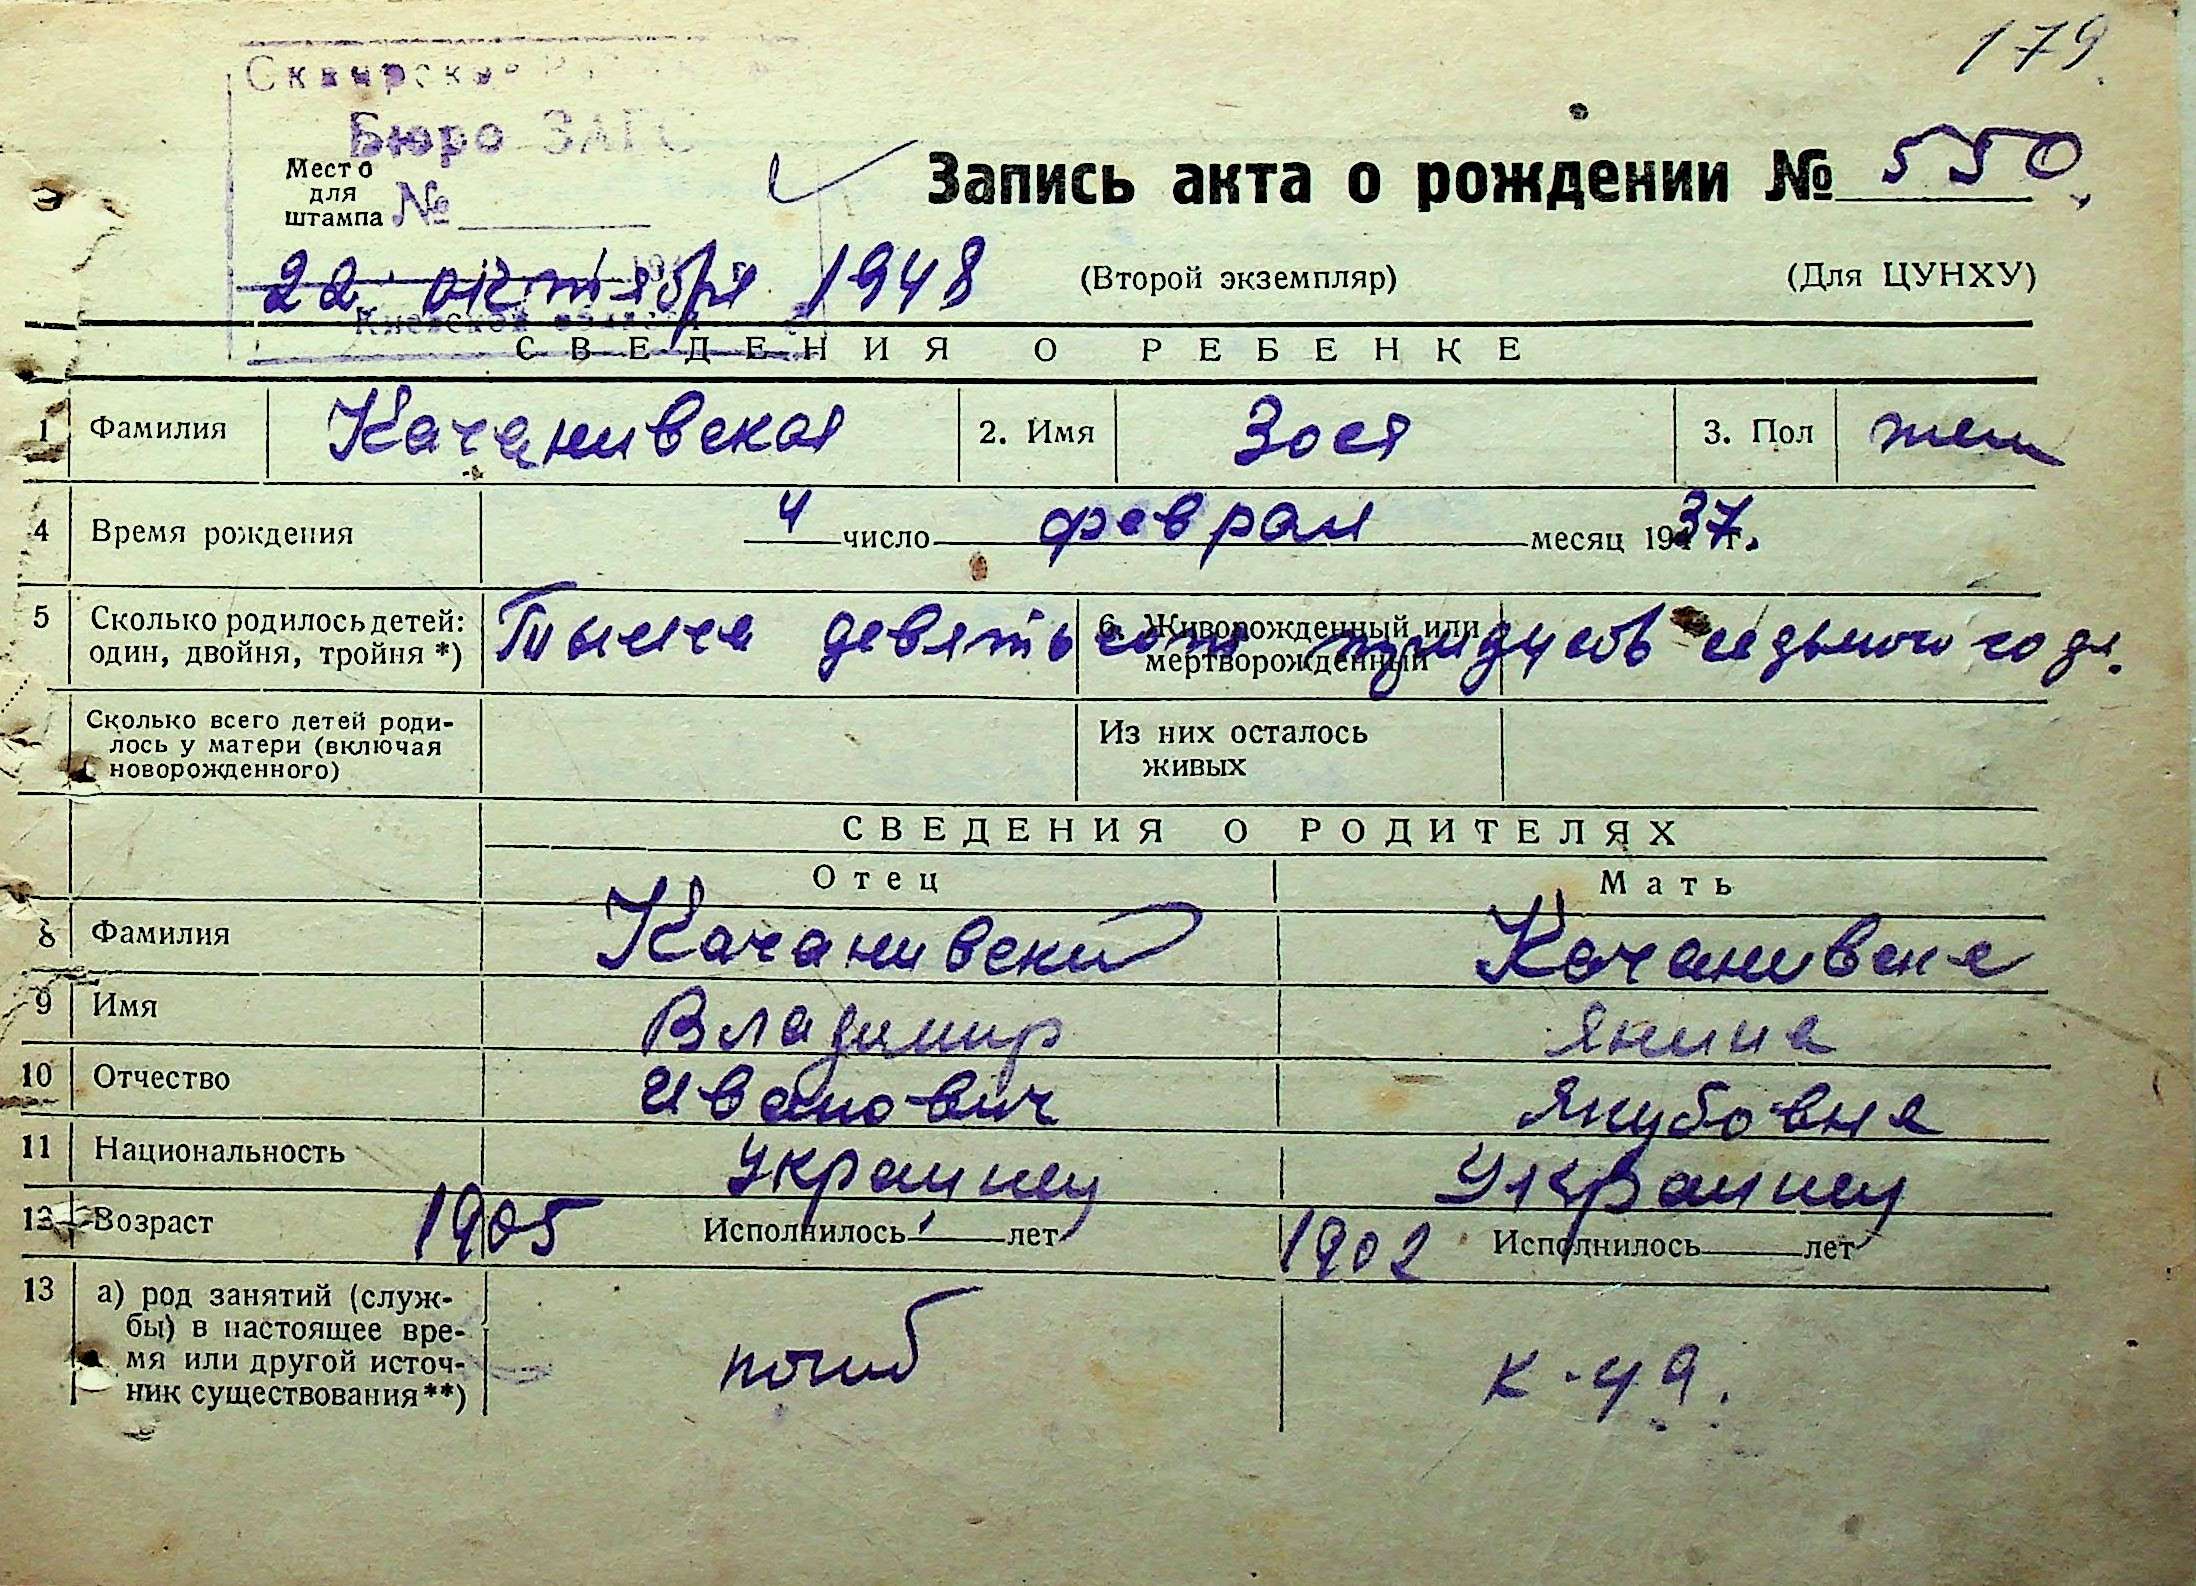 179
Сквирское
Бюро ЗАГС
Место
для
штампа №
Запись акта о рождении № 550
22 октября 1948
(Второй экземпляр)
(Для ЦУНХУ)
Киевской области
СВЕДЕНИЯ О РЕБЕНКЕ
1 Фамилия Качанивская 2. Имя Зося 3. Пол жен
4 Время рождения 4 число февраля месяц 1937 г.
5 Сколько родилось детей: один, двойня, тройня *) 6. Живорожденный или мертворожденный
Тысяча девятьсот тридцать седьмого года.
Сколько всего детей родилось у матери (включая новорожденного) Из них осталось живых
СВЕДЕНИЯ О РОДИТЕЛЯХ
Отец Мать
8 Фамилия Качанивский Качанивская
9 Имя Владимир Янина
10 Отчество Иванович Якубовна
11 Национальность Украинец Украинец
12 Возраст 1905 Исполнилось лет 1902 Исполнилось лет
13 а) род занятий (служ-
бы) в настоящее вре-
мя или другой источ-
ник существования**)
погиб к-ца.